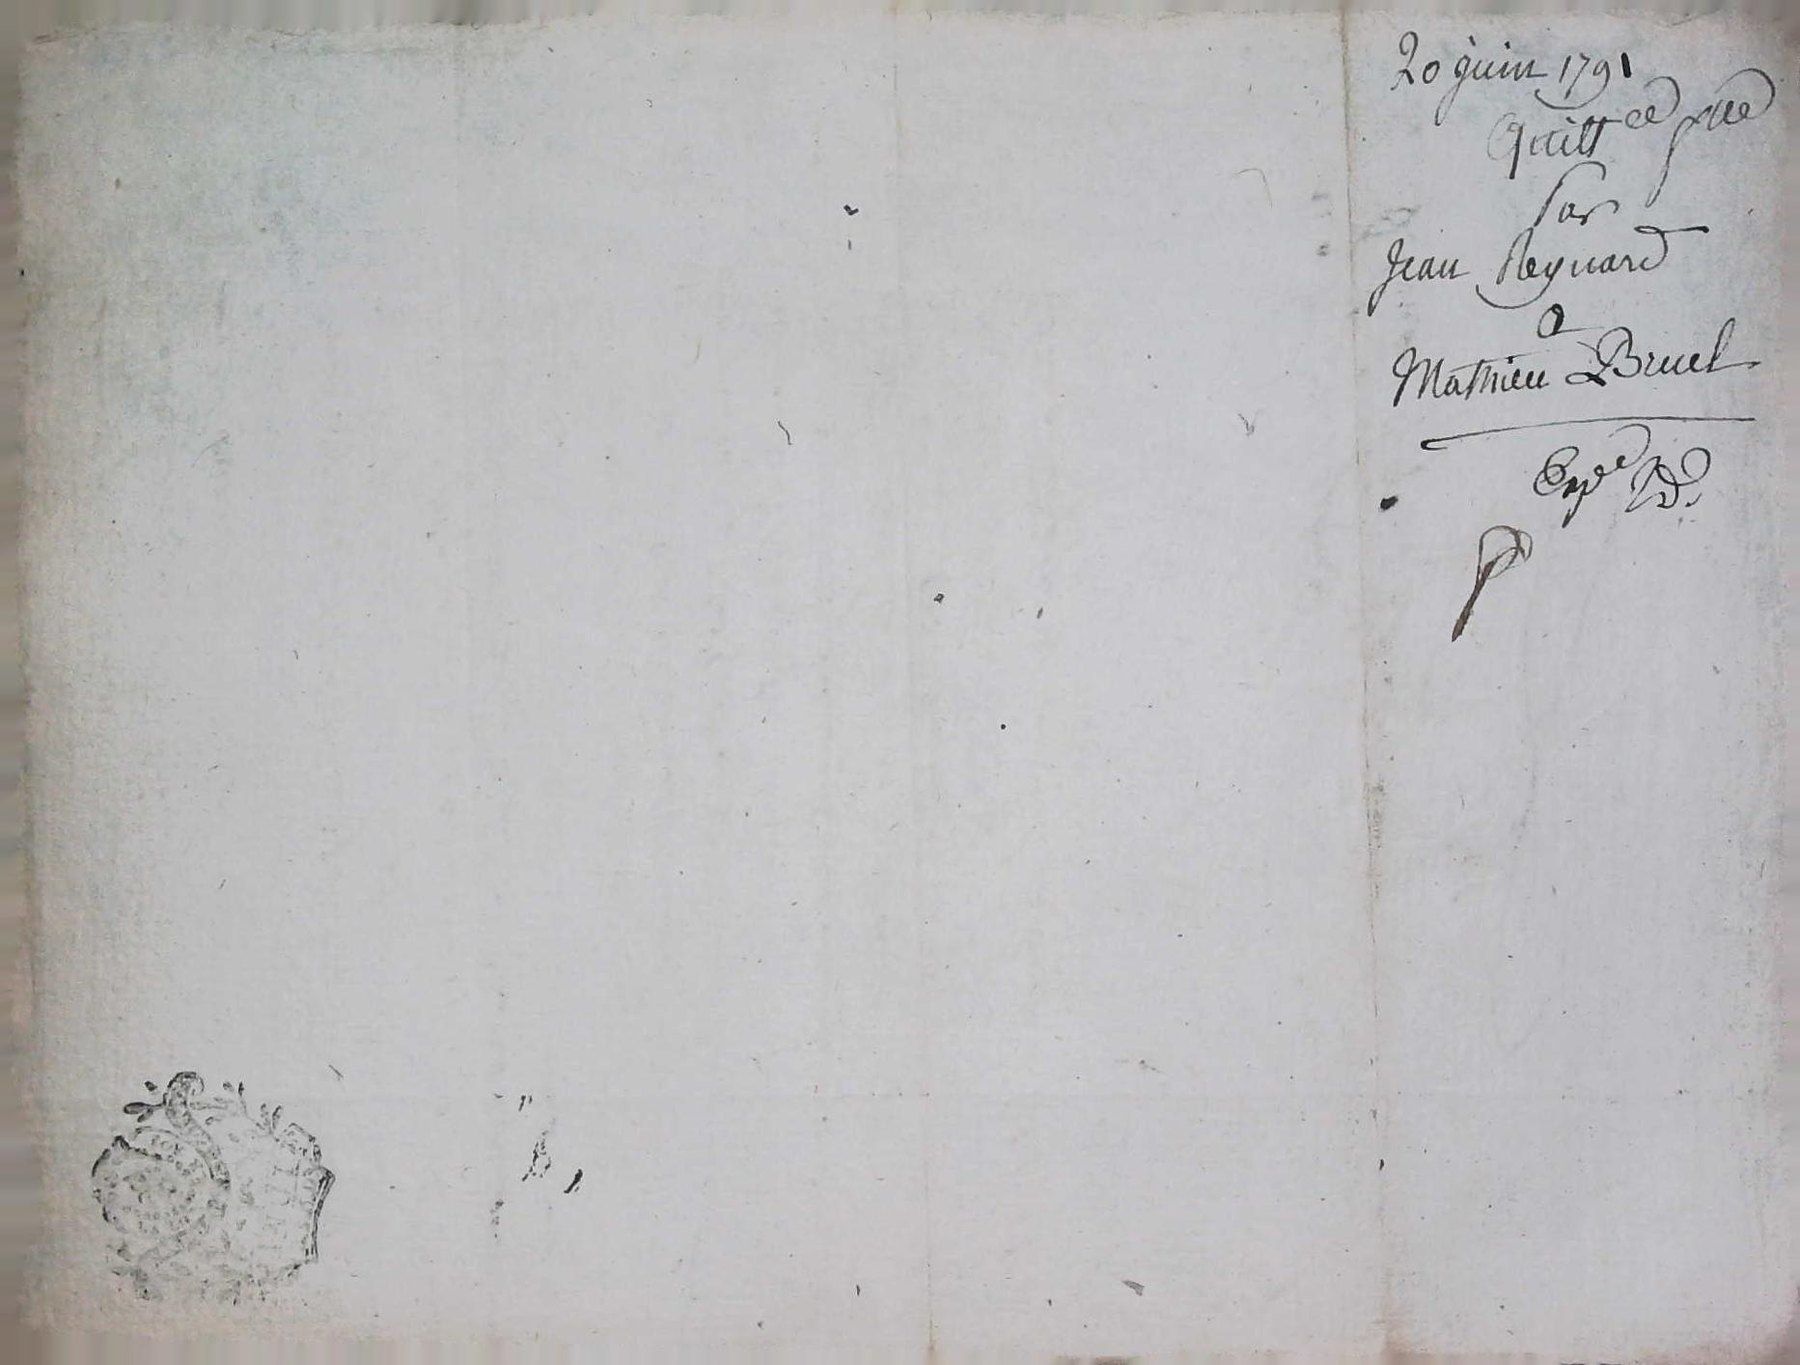 20 juin 1791
Quitt.ce
par
Jean Reynard
a
Mathieu Bruel
Exp.ée